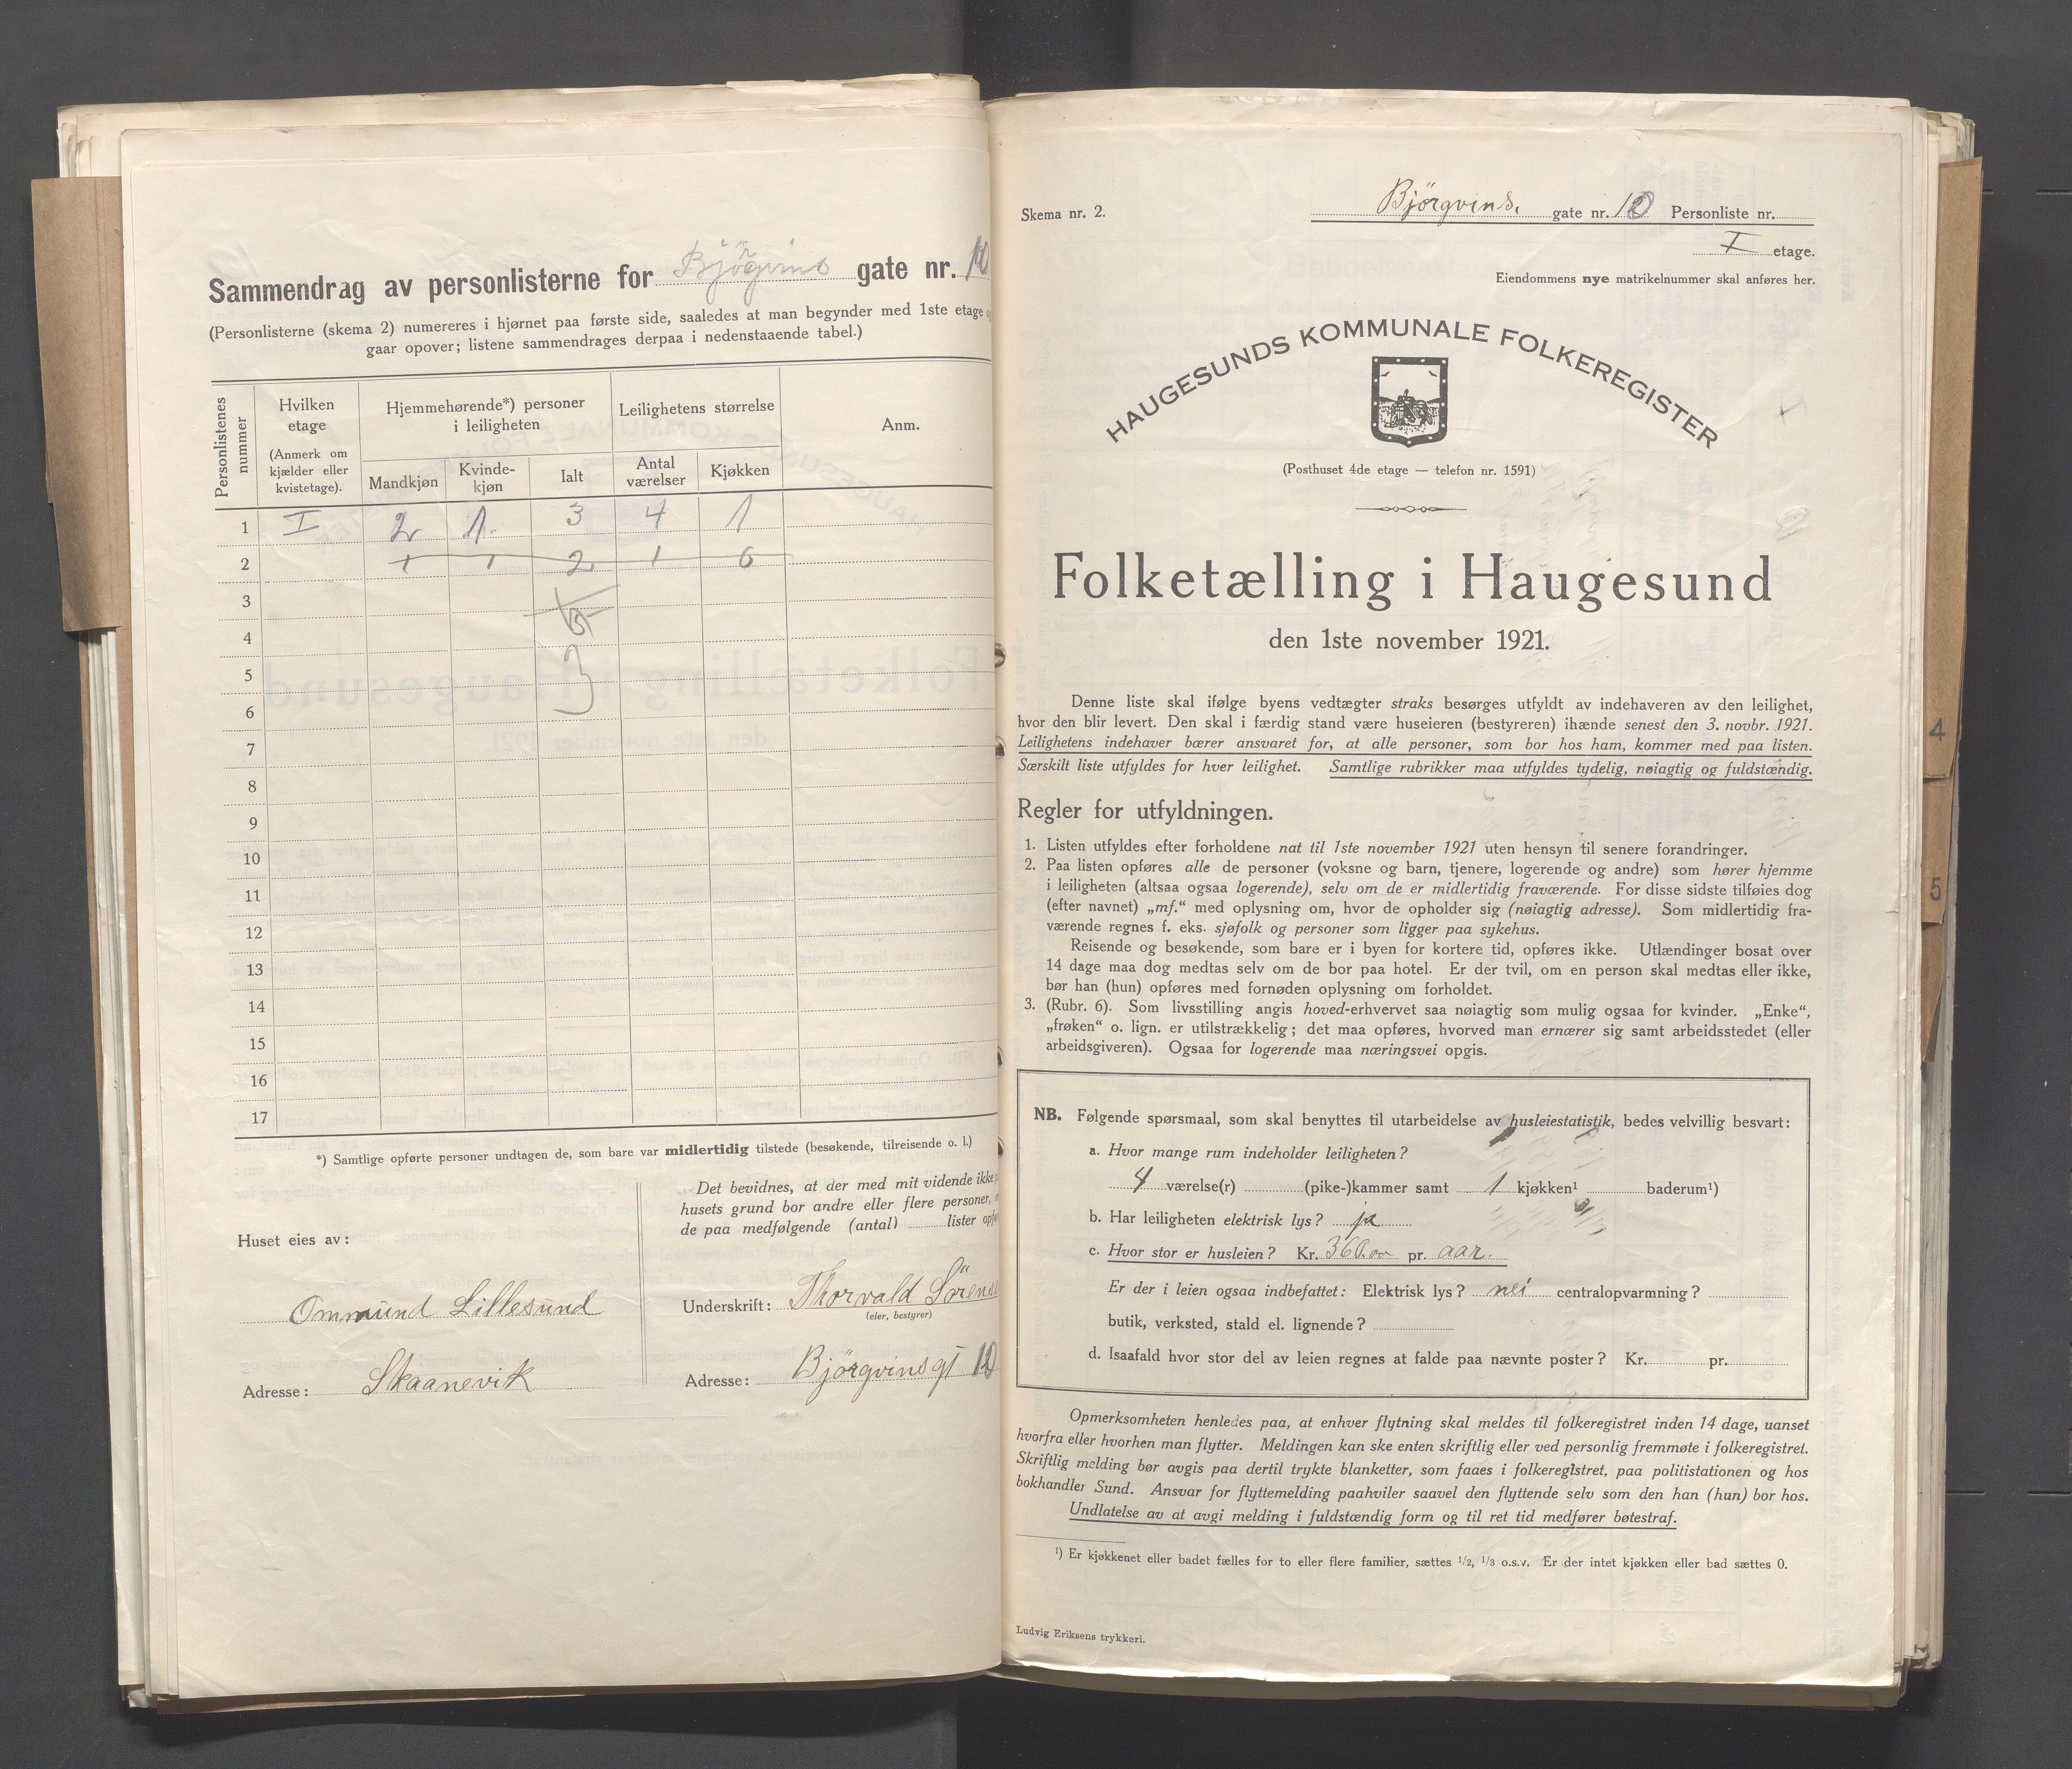 Sammendrag av personlisterne for Bjørgvins gate nr. 10
(Personlisterne (skema 2) numereres i hjørnet paa første side, saaledes at man begynder med 1ste etage og
gaar opover; listene sammendrages derpaa i nedenstaaende tabel.)
Personlistenes nummer
Hvilken etage
(Anmerk om kjælder eller kvistetage).
Hjemmehørende*) personer i leiligheten
Mandkjøn
Kvinde-kjøn
Ialt
Leilighetens størrelse
Antal værelser
Kjøkken
Anm.
1 I 2 1. 3 4 1
2 1 1 2 1 0
3
4
5 3
6
7
8
9
10
11
12
13
14
15
16
17
*) Samtlige opførte personer undtagen de, som bare var midlertidig tilstede (besøkende, tilreisende o. l.)
Det bevidnes, at der med mit vidende ikke
husets grund bor andre eller flere personer,
de paa medfølgende (antal) lister
Huset eies av:
Ommund Lillesund
Adresse: Skaanevik
Underskrift: Thorvald Sörens
(eier, bestyrer)
Adresse: Bjørgvinsgt 10
Skema nr. 2.
Björgvins. gate nr. 10 Personliste nr.
I etage.
Eiendommens nye matrikelnummer skal anføres her.
HAUGESUNDS KOMMUNALE FOLKEREGISTER
(Posthuset 4de etage — telefon nr. 1591)
Folketælling i Haugesund
den 1ste november 1921.
Denne liste skal ifølge byens vedtægter straks besørges utfyldt av indehaveren av den leilighet,
hvor den blir levert. Den skal i færdig stand være huseieren (bestyreren) ihænde senest den 3. novbr. 1921.
Leilighetens indehaver bærer ansvaret for, at alle personer, som bor hos ham, kommer med paa listen.
Særskilt liste utfyldes for hver leilighet. Samtlige rubrikker maa utfyldes tydelig, nøiagtig og fuldstændig.
Regler for utfyldningen.
1. Listen utfyldes efter forholdene nat til 1ste november 1921 uten hensyn til senere forandringer.
2. Paa listen opføres alle de personer (voksne og barn, tjenere, logerende og andre) som hører hjemme
i leiligheten (altsaa ogsaa logerende), selv om de er midlertidig fraværende. For disse sidste tilføies dog
(efter navnet) „mf.“ med oplysning om, hvor de opholder sig (nøiagtig adresse). Som midlertidig fra-
værende regnes f. eks. sjøfolk og personer som ligger paa sykehus.
Reisende og besøkende, som bare er i byen for kortere tid, opføres ikke. Utlændinger bosat over
14 dage maa dog medtas selv om de bor paa hotel. Er der tvil, om en person skal medtas eller ikke,
bør han (hun) opføres med fornøden oplysning om forholdet.
3. (Rubr. 6). Som livsstilling angis hoved-erhvervet saa nøiagtig som mulig ogsaa for kvinder. „Enke“,
„frøken“ o. lign. er utilstrækkelig; det maa opføres, hvorved man ernærer sig samt arbeidsstedet (eller
arbeidsgiveren). Ogsaa for logerende maa næringsvei opgis.
NB. Følgende spørsmaal, som skal benyttes til utarbeidelse av husleiestatistik, bedes velvillig besvart:
a. Hvor mange rum indeholder leiligheten?
4 værelse(r) (pike-)kammer samt 1 kjøkken¹ baderum¹)
b. Har leiligheten elektrisk lys? ja
c. Hvor stor er husleien? Kr. 360.00 pr. aar.
Er der i leien ogsaa indbefattet: Elektrisk lys? nei centralopvarmning?
butik, verksted, stald el. lignende?
d. Isaafald hvor stor del av leien regnes at falde paa nævnte poster? Kr. pr.
Opmerksomheten henledes paa, at enhver flytning skal meldes til folkeregistret inden 14 dage, uanset
hvorfra eller hvorhen man flytter. Meldingen kan ske enten skriftlig eller ved personlig fremmøte i folkeregistret.
Skriftlig melding bør avgis paa dertil trykte blanketter, som faaes i folkeregistret, paa politistationen og hos
bokhandler Sund. Ansvar for flyttemelding paahviler saavel den flyttende selv som den han (hun) bor hos.
Undlatelse av at avgi melding i fuldstændig form og til ret tid medfører bøtestraf.
¹) Er kjøkkenet eller badet fælles for to eller flere familier, sættes 1/2, 1/3 o.s.v. Er der intet kjøkken eller bad sættes 0.
Ludvig Eriksens trykkeri.
4
5